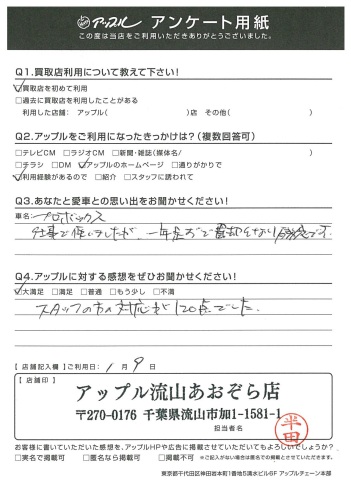 アップル アンケート用紙
この度は当店をご利用いただきありがとうございました。
Q1.買取店利用について教えて下さい!
☑買取店を初めて利用
□過去に買取店を利用したことがある
利用した店舗： アップル( )店 その他( )
Q2.アップルをご利用になったきっかけは?(複数回答可)
□テレビCM □ラジオCM □新聞・雑誌(媒体名/ )
□チラシ □DM ☑アップルのホームページ □通りがかりで
☑利用経験があるので □紹介 □スタッフに誘われて
Q3.あなたと愛車との思い出をお聞かせください!
車名： プロボックス
仕事で使いましたが、一年足らずで
Q4.アップルに対する感想をぜひお聞かせください!
☑大満足 □満足 □普通 □もう少し □不満
スタッフの方の対応が120点でした。
【店舗記入欄】ご利用日： 1月9日
【店舗印】
アップル流山あおぞら店
〒270-0176 千葉県流山市加1-1581-1
担当者名
半田
お客様に書いていただいた感想を、アップルHPや広告に掲載させていただいてもよろしいでしょうか?
□実名で掲載可 □匿名なら掲載可 □掲載不可 ※ご記入がない場合は匿名での掲載とさせていただきます。
東京都千代田区神田岩本町1番地5清水ビル6F アップルチェーン本部